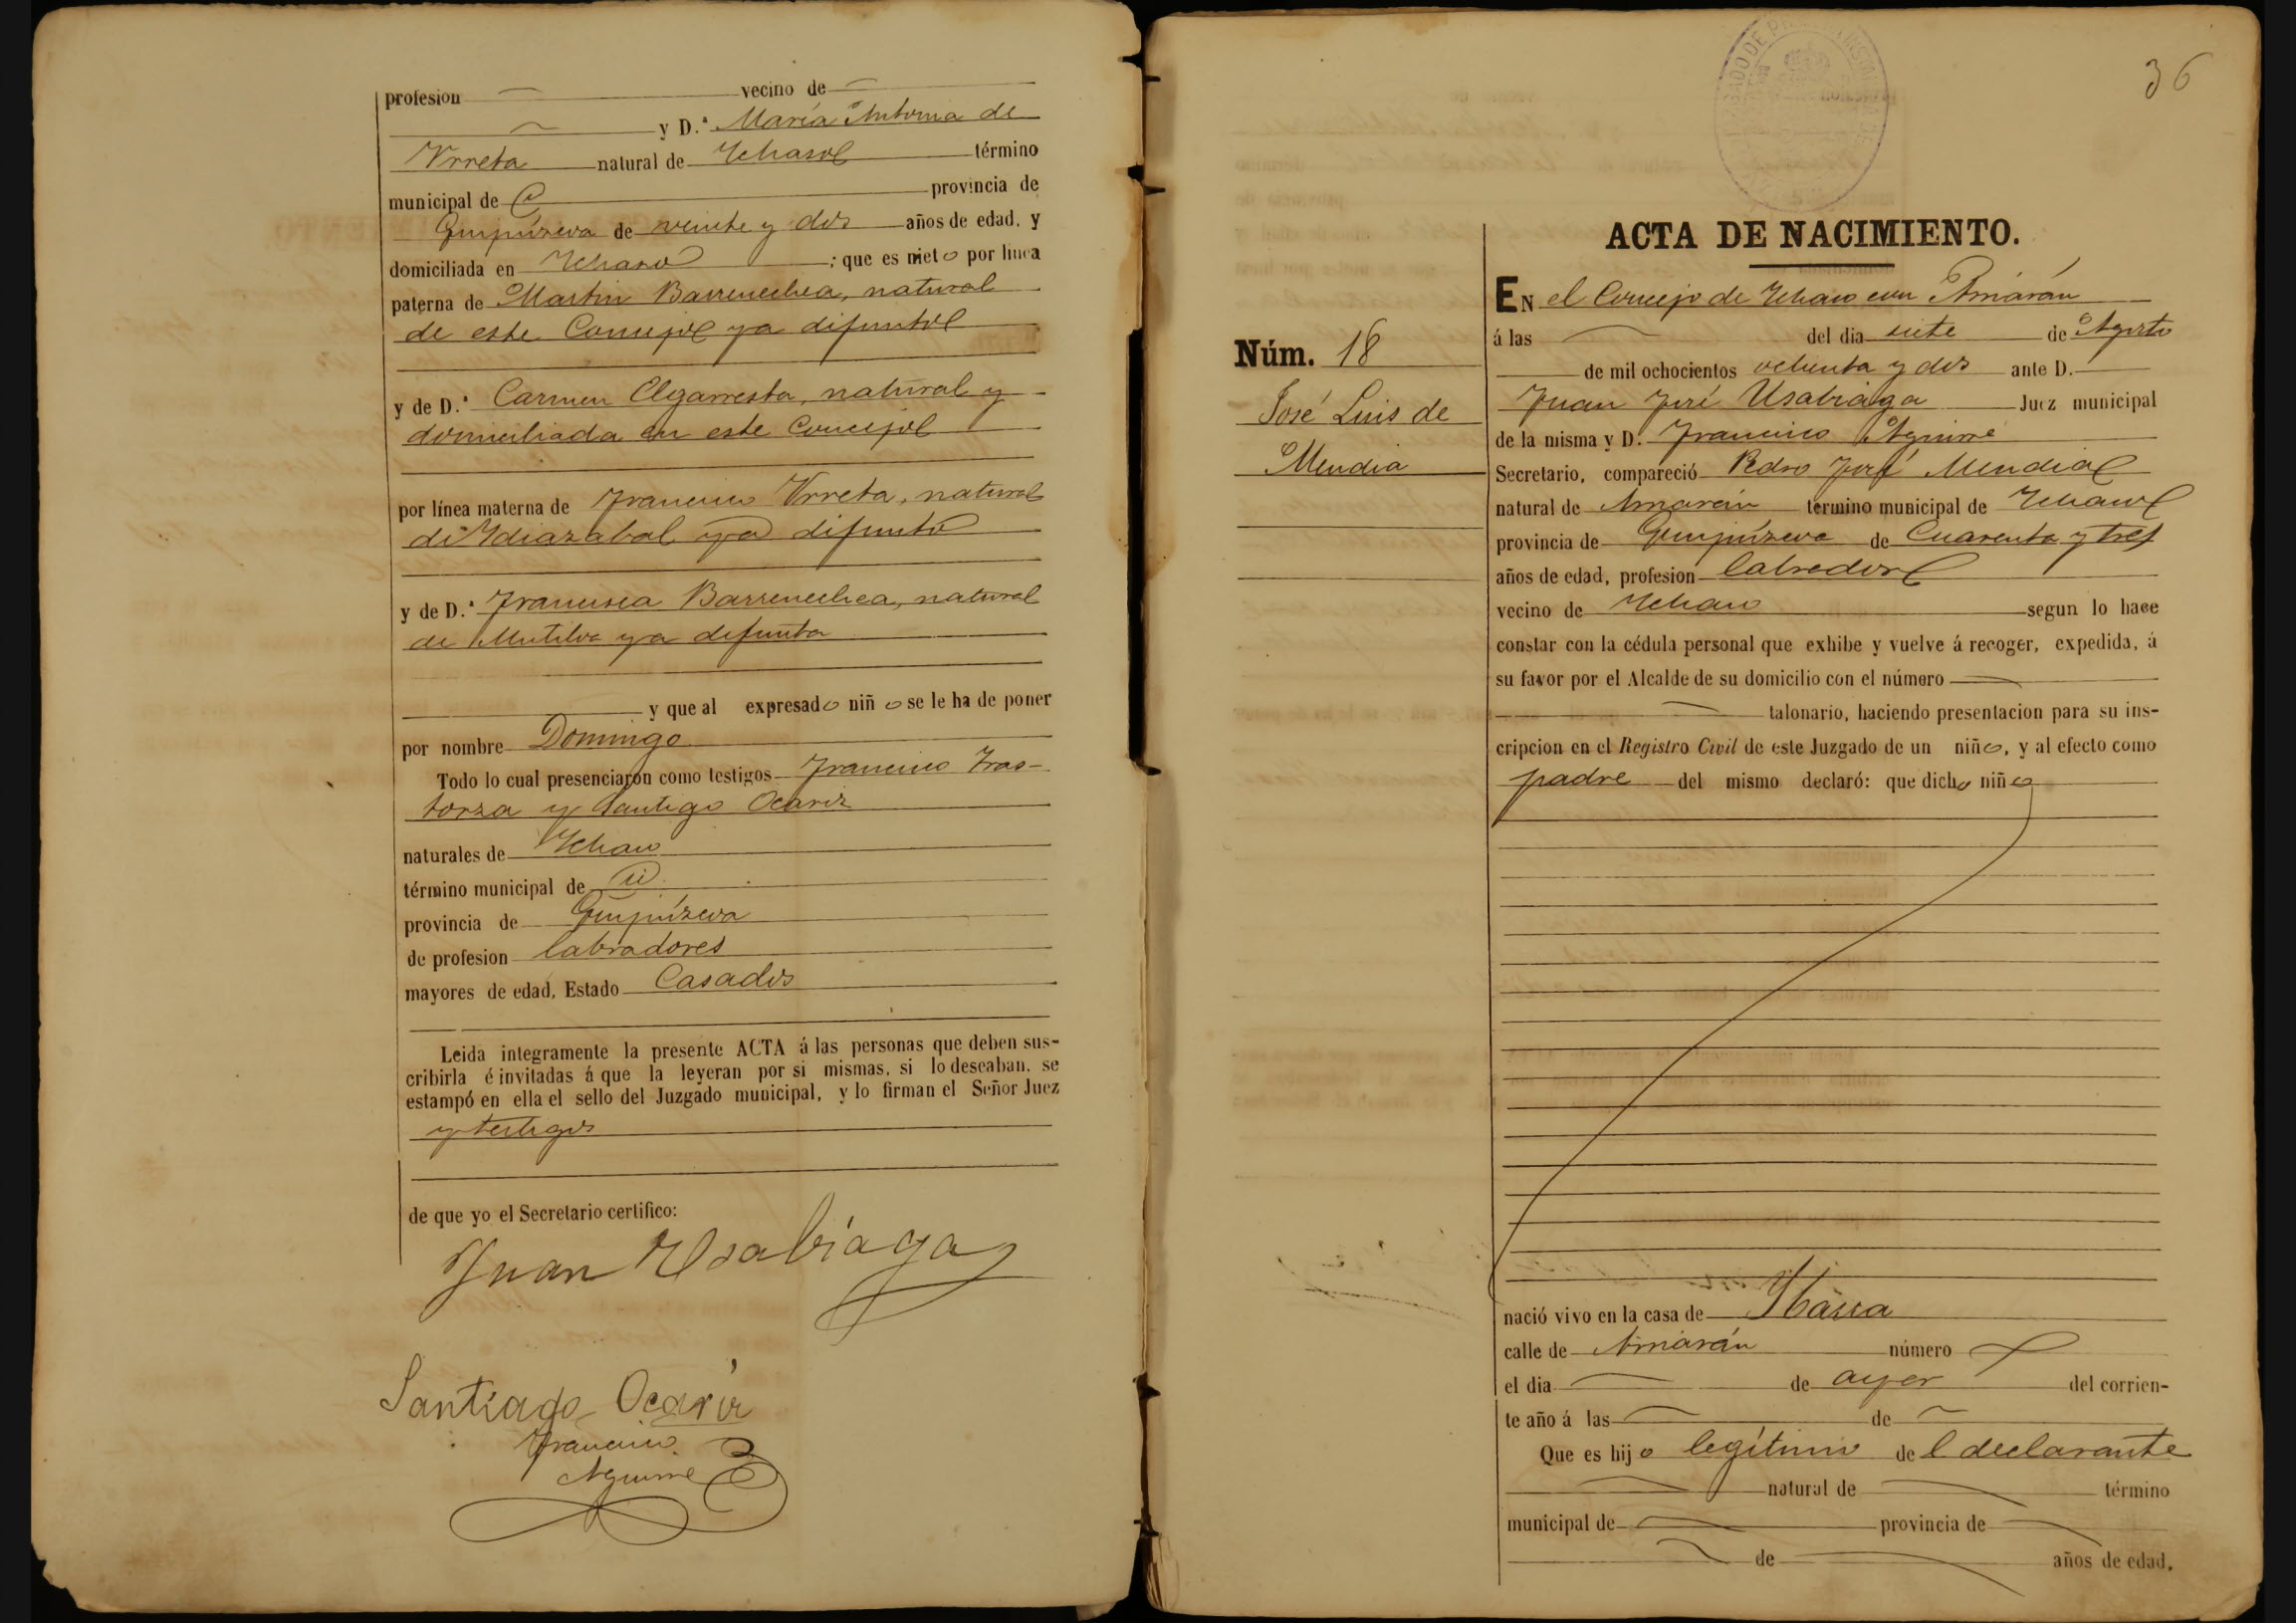 profesion vecino de
y D.ª María Antonia de
Urreta natural de Ichaso término
municipal de provincia de
Guipúzcoa de veinte y dos años de edad, y
domiciliada en Ichaso ; que es nieto por línea
paterna de Martin Barrenechea, natural
de este Concejo ya difunto
y de D.ª Carmen Elgarresta, natural y
domiciliada en este Concejo
por línea materna de Francisco Urreta, natural
de Ydiazabal ya difunto
y de D.ª Francisca Barrenechea, natural
de Mutiloa ya difunta
y que al expresado niño se le ha de poner
por nombre Domingo
Todo lo cual presenciaron como testigos Francisco Iras-
torza y Santiago Ocariz
naturales de Ichaso
término municipal de id
provincia de Guipúzcoa
de profesion labradores
mayores de edad, Estado Casados
Leida integramente la presente ACTA á las personas que deben sus-
cribirla é invitadas á que la leyeran por si mismas, si lo deseaban, se
estampó en ella el sello del Juzgado municipal, y lo firman el Señor Juez
y testigos
de que yo el Secretario certifico:
Juan Usabiaga
Santiago Ocariz
Francisco
Aguirre
36
ACTA DE NACIMIENTO.
Núm. 18
José Luis de
Mendia
EN el Concejo de Ichaso con Arriarán
á las del dia siete de Agosto
de mil ochocientos ochenta y dos ante D.
Juan José Usabiaga Juez municipal
de la misma y D. Francisco Aguirre
Secretario, compareció Pedro José Mendia
natural de Arriarán término municipal de Ichaso
provincia de Guipúzcoa de Cuarenta y tres
años de edad, profesion labrador
vecino de Ichaso segun lo hace
constar con la cédula personal que exhibe y vuelve á recoger, expedida, á
su favor por el Alcalde de su domicilio con el número
talonario, haciendo presentacion para su ins-
cripcion en el Registro Civil de este Juzgado de un niño, y al efecto como
padre del mismo declaró: que dicho niño
nació vivo en la casa de Ybarra
calle de Arriarán número
el dia de ayer del corrien-
te año á las de
Que es hijo legítimo de l declarante
natural de término
municipal de provincia de
de años de edad,